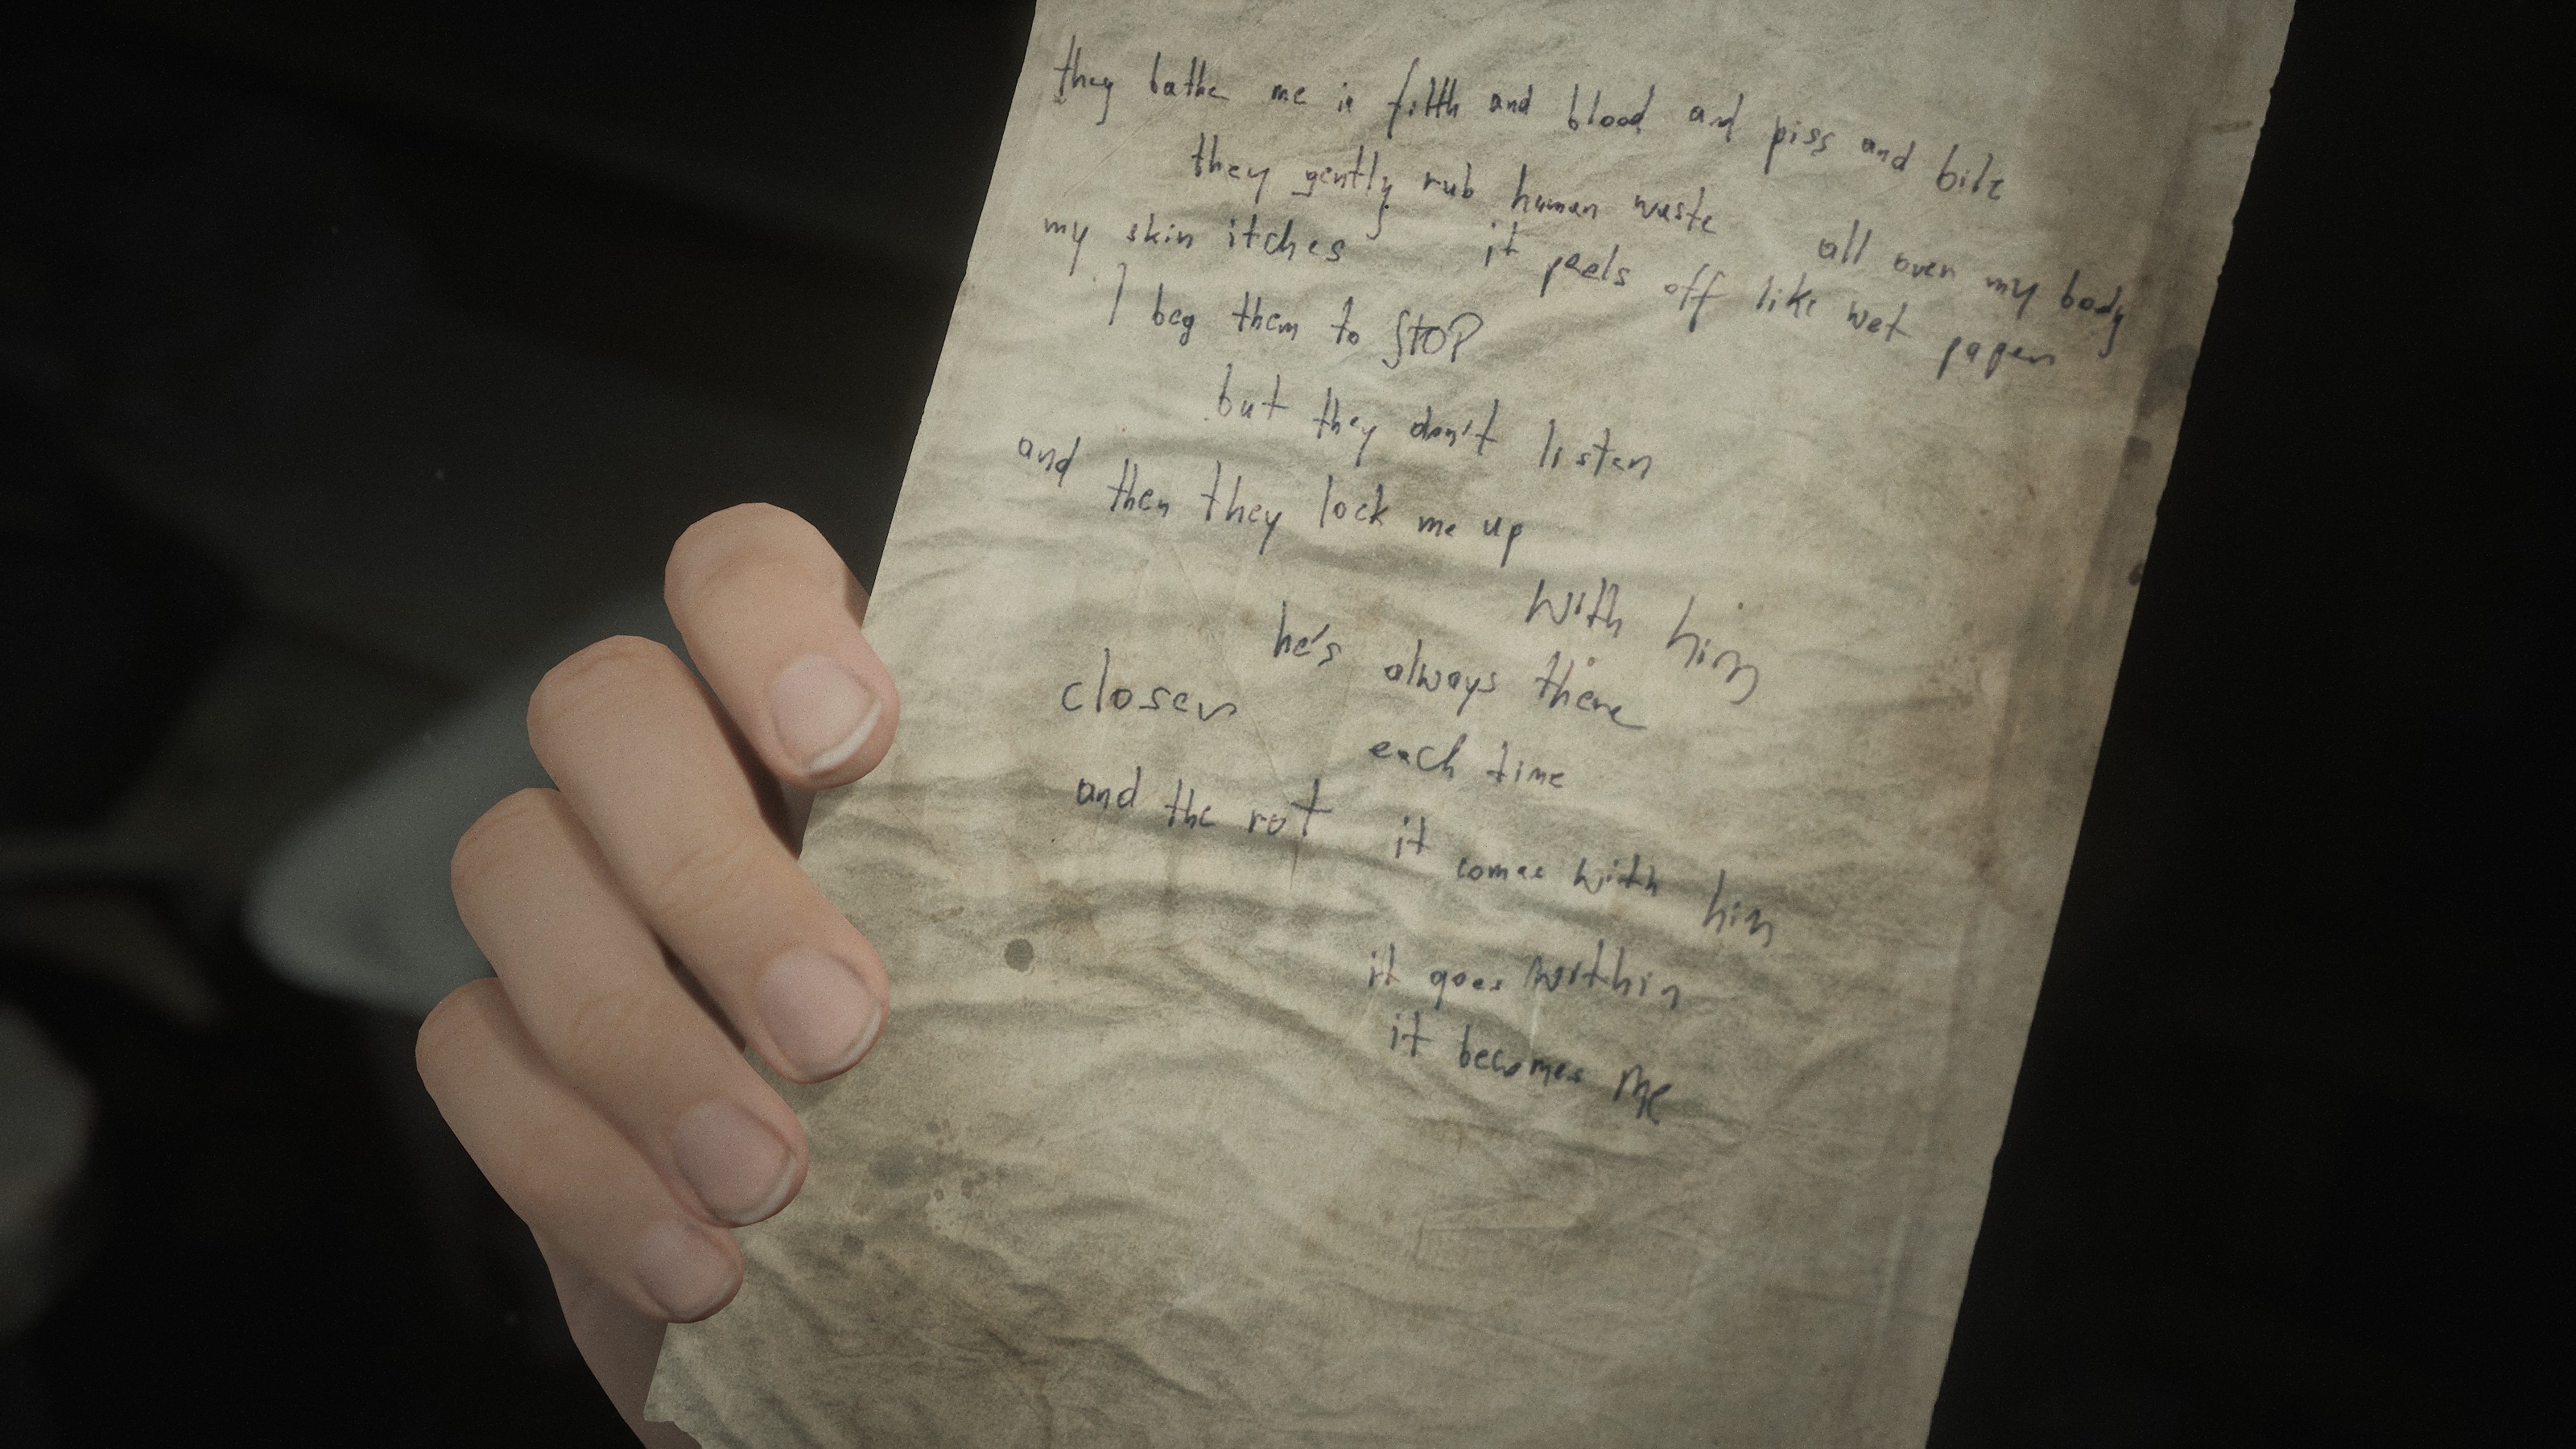 they bathe me in filth and blood and piss and bile
they gently rub human waste all over my body
my skin itches it peels off like wet paper
I beg them to STOP
but they don't listen
and then they lock me up
with him
he's always there
closer
each time
and the rot it comes with him
it goes within
it becomes me